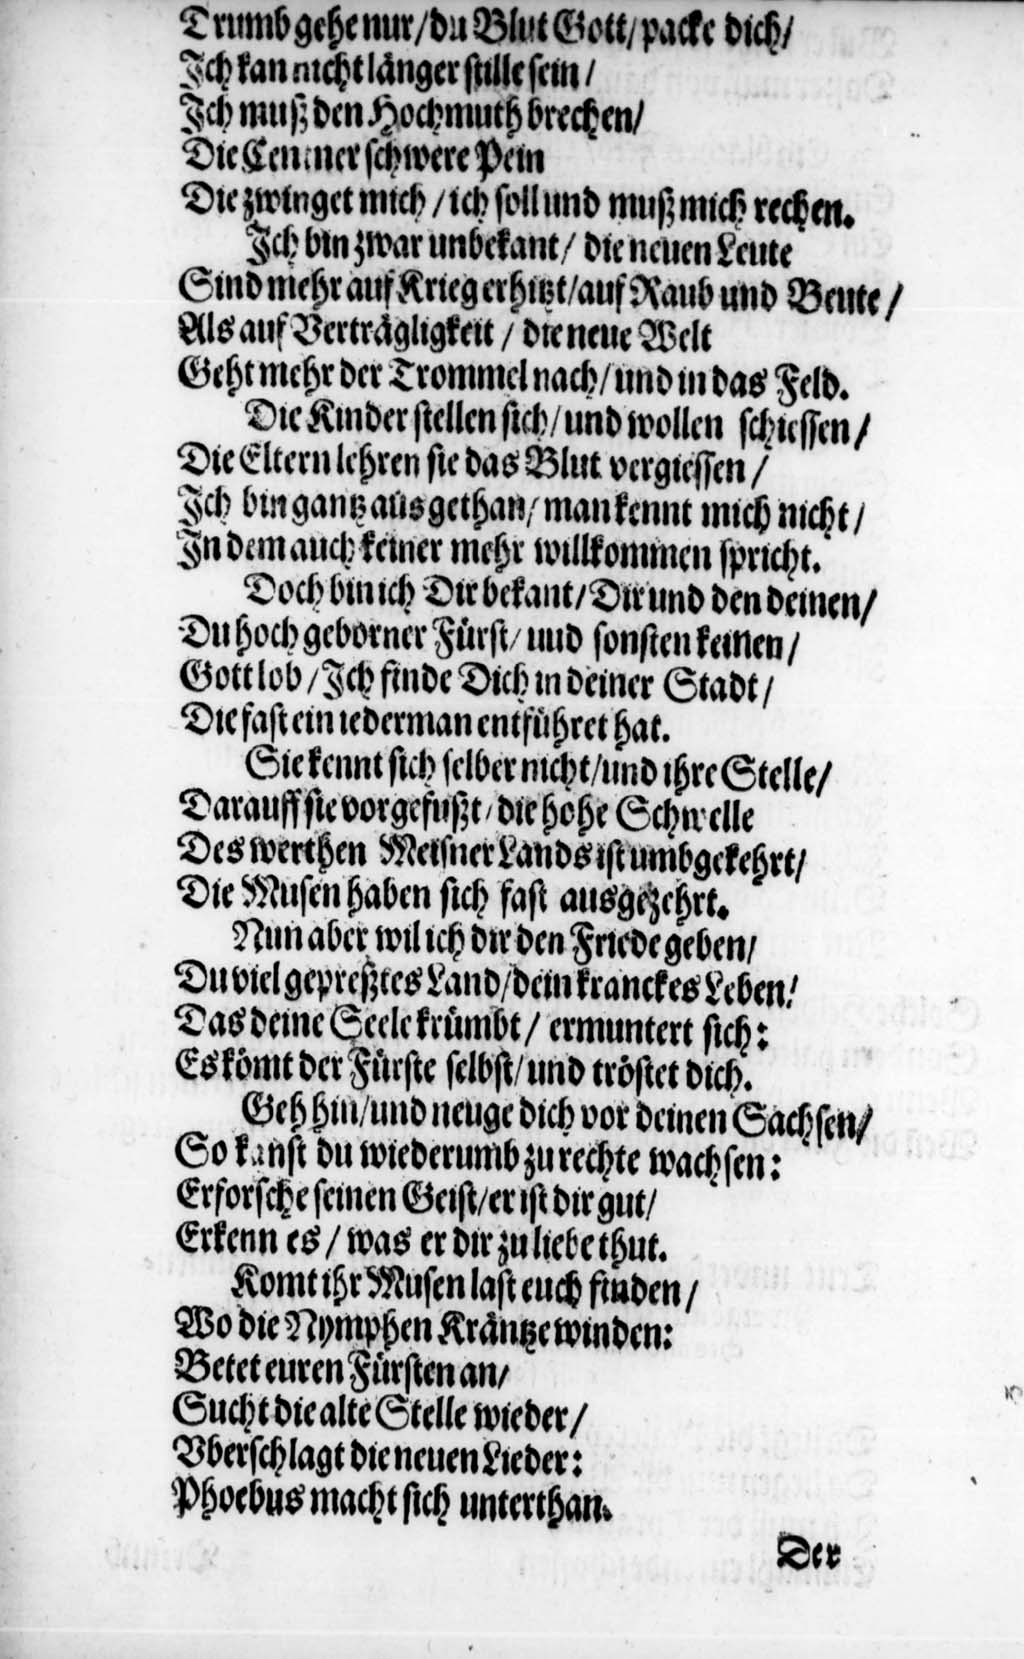 Drumb gehe nur/du Blut Gott/packe dich/
Ich kan nicht länger stille sein/
Ich muß den Hochmuth brechen/
Die Centner schwere Pein
Die zwinget mich/ich soll und muß mich rechen.
Ich bin zwar unbekant/ die neuen Leute
Sind mehr auf Krieg erhitzt/auf Raub und Beute/
Als auf Verträgligkeit/ die neue Welt
Geht mehr der Trommel nach/und in das Feld.
Die Kinder stellen sich/und wollen schiessen/
Die Eltern lehren sie das Blut vergiessen/
Ich bin gantz ausgethan/man kennt mich nicht/
In dem auch keiner mehr willkommen spricht.
Doch bin ich Dir bekant/Dir und den deinen/
Du hoch geborner Fürst/ uud sonsten keinen/
Gott lob/Ich finde Dich in deiner Stadt/
Die fast ein iederman entführet hat.
Sie kennt sich selber nicht/und ihre Stelle/
Darauff sie vor gefußt/die hohe Schwelle
Des werthen Meisner Lands ist umbgekehrt/
Die Musen haben sich fast ausgezehrt.
Nun aber wil ich dir den Friede geben/
Du viel gepreßtes Land/dein kranckes Leben!
Das deine Seele krümbt/ ermuntert sich:
Es kömt der Fürste selbst/und tröstet dich.
Geh hin/und neuge dich vor deinen Sachsen/
So kanst du wiederumb zu rechte wachsen:
Erforsche seinen Geist/er ist dir gut/
Erkenn es/ was er dir zu liebe thut.
Komt ihr Musen last euch finden/
Wo die Nymphen Kräntze winden:
Betet euren Fürsten an/
Sucht die alte Stelle wieder/
Vberschlagt die neuen Lieder:
Phoebus macht sich unterthan.
Der